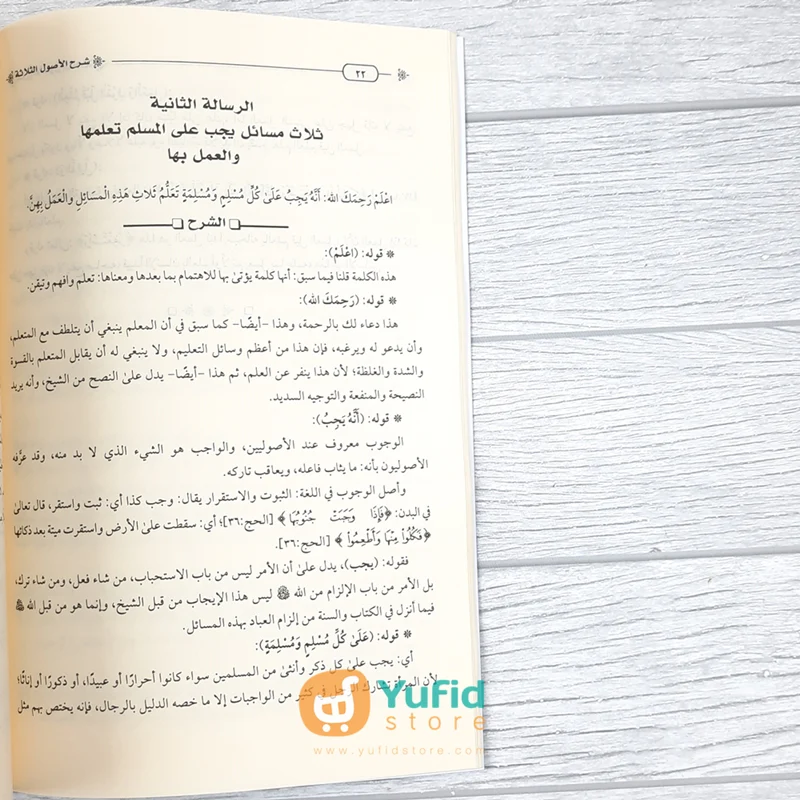 شرح الأصول الثلاثة
٢٢
الرسالة الثانية
ثلاث مسائل يجب على المسلم تعلمها
والعمل بها
اعْلَمْ رَحِمَكَ الله: أَنَّهُ يَجِبُ عَلَىٰ كُلِّ مُسْلِمٍ وَمُسْلِمَةٍ تَعَلُّمُ ثَلاثِ هَذِهِ الْمَسَائِلِ والْعَمَلُ بِهِنَّ.
الشرح
* قوله: (اعْلَمْ):
هذه الكلمة قلنا فيما سبق: أنها كلمة يؤتىٰ بها للاهتمام بما بعدها ومعناها: تعلم وافهم وتيقن.
* قوله: (رَحِمَكَ الله):
هذا دعاء لك بالرحمة، وهذا -أيضًا- كما سبق في أن المعلم ينبغي أن يتلطف مع المتعلم،
وأن يدعو له ويرغبه، فإن هذا من أعظم وسائل التعليم، ولا ينبغي له أن يقابل المتعلم بالقسوة
والشدة والغلظة؛ لأن هذا ينفر عن العلم، ثم هذا -أيضًا- يدل علىٰ النصح من الشيخ، وأنه يريد
النصيحة والمنفعة والتوجيه السديد.
* قوله: (أَنَّهُ يَجِبُ):
الوجوب معروف عند الأصوليين، والواجب هو الشيء الذي لا بد منه، وقد عرَّفه
الأصوليون بأنه: ما يثاب فاعله، ويعاقب تاركه.
وأصل الوجوب في اللغة: الثبوت والاستقرار يقال: وجب كذا أي: ثبت واستقر، قال تعالىٰ
في البدن: ﴿فَإِذَا وَجَبَتْ جُنُوبُهَا﴾ [الحج:٣٦]؛ أي: سقطت علىٰ الأرض واستقرت ميتة بعد ذكاتها
﴿فَكُلُوا مِنْهَا وَأَطْعِمُوا﴾ [الحج:٣٦].
فقوله: (يجب)، يدل علىٰ أن الأمر ليس من باب الاستحباب، من شاء فعل، ومن شاء ترك،
بل الأمر من باب الإلزام من الله ﷻ ليس هذا الإيجاب من قبل الشيخ، وإنما هو من قبل الله ﷻ
فيما أنزل في الكتاب والسنة من إلزام العباد بهذه المسائل.
* قوله: (عَلَىٰ كُلِّ مُسْلِمٍ وَمُسْلِمَةٍ):
أي: يجب علىٰ كل ذكر وأنثىٰ من المسلمين سواء كانوا أحرارًا أو عبيدًا، أو ذكورًا أو إناثًا؛
لأن المرأة تشارك الرجل في كثير من الواجبات إلا ما خصه الدليل بالرجال، فإنه يختص بهم مثل
Yufid
store
www.yufidstore.com